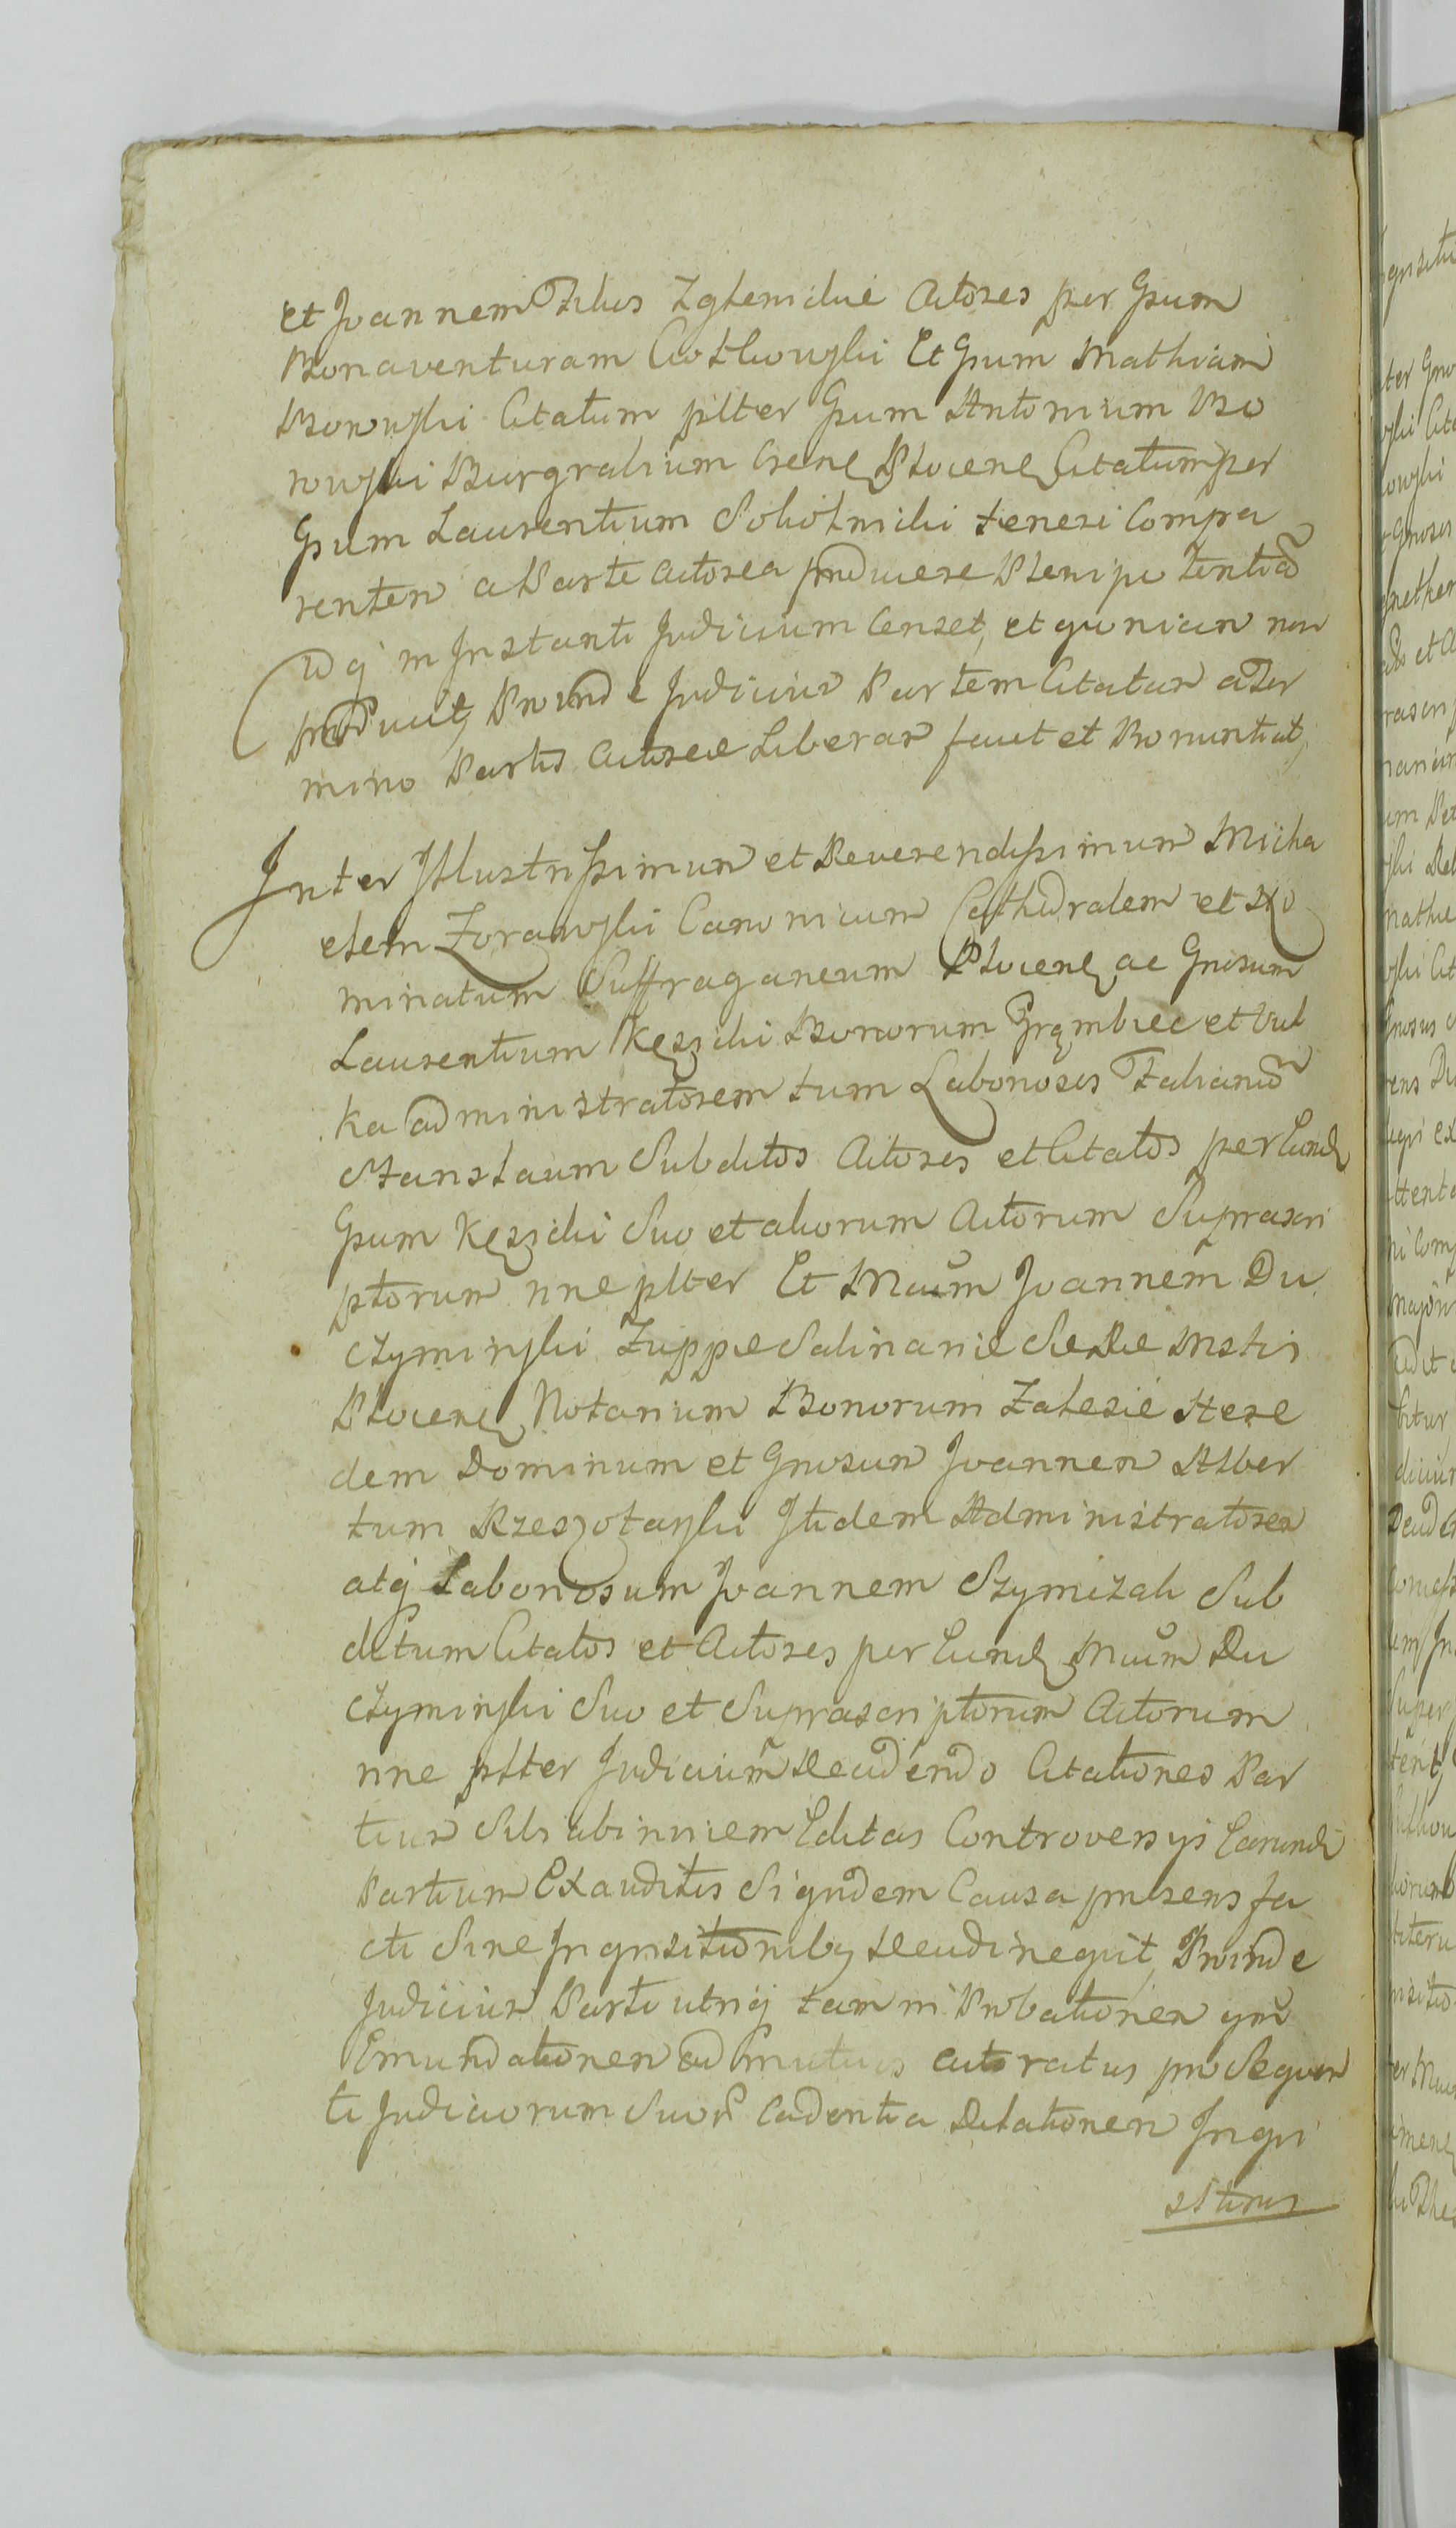 et Joannem Filios Zglenickie Actores per Gsum
Bonaventuram Cwtkowski Et Gsum Mathiam
Bonowski Citatum plter Gsum Antonium Bo
nowski Burgrabium Crene Plocene Citatum per
Gsum Laurentium Sokolnicki teneri Compa
renten a Parte Actorea producere Plenipotentia
idq in Instanti Judicium Censet, et quoniam non
produxit, Proinde Judicium Partem Citatam a Ter
mino Partis Actoreae Liberam facit et Pronuntiat,
Inter Illustrissimum et Reverendissimum Micha
elem Zorawski Canonicum Cathedralem et No
minatum Suffraganeum Plocene ac Gnosum
Laurentium Kęsicki Bonorum Grąmbiec et Bul
ka administratorem tum Laboriosos Fabianum
Stanslaum Subditos Actores et Citatos per Eund
Gsum Kęsicki Suo et aliorum Actorum Suprascri
ptorum nne plter Et Mcum Joannem Du
czyminski Zuppae Salinariae SaeRae Mstis
Plocene Notarium Bonorum Zalesie Here
dem Dominum et Gnosum Joannem Alber
tum Rzeszotarski Itidem Administratorem
atq Laboriosum Joannem Szymczak Sub
ditum Citatos et Actores per Eund Mcum Du
czyminski Suo et Suprascriptorum Actorum
nne plter Judicium Decidendo Citationes Par
tium Sibi abinvicem Editas Controversys Earund
Partium Exauditis Siquidem Causa praesens fa
cti Sine Inquisitionibq Decidi nequit, Proinde
Judicium Parti utriq tam in Probationem qm
Emundationem ad mutuos actoratus pro Sequen
ti Judiciorum Suor Cadentia Dilationem Inqui
sitionis